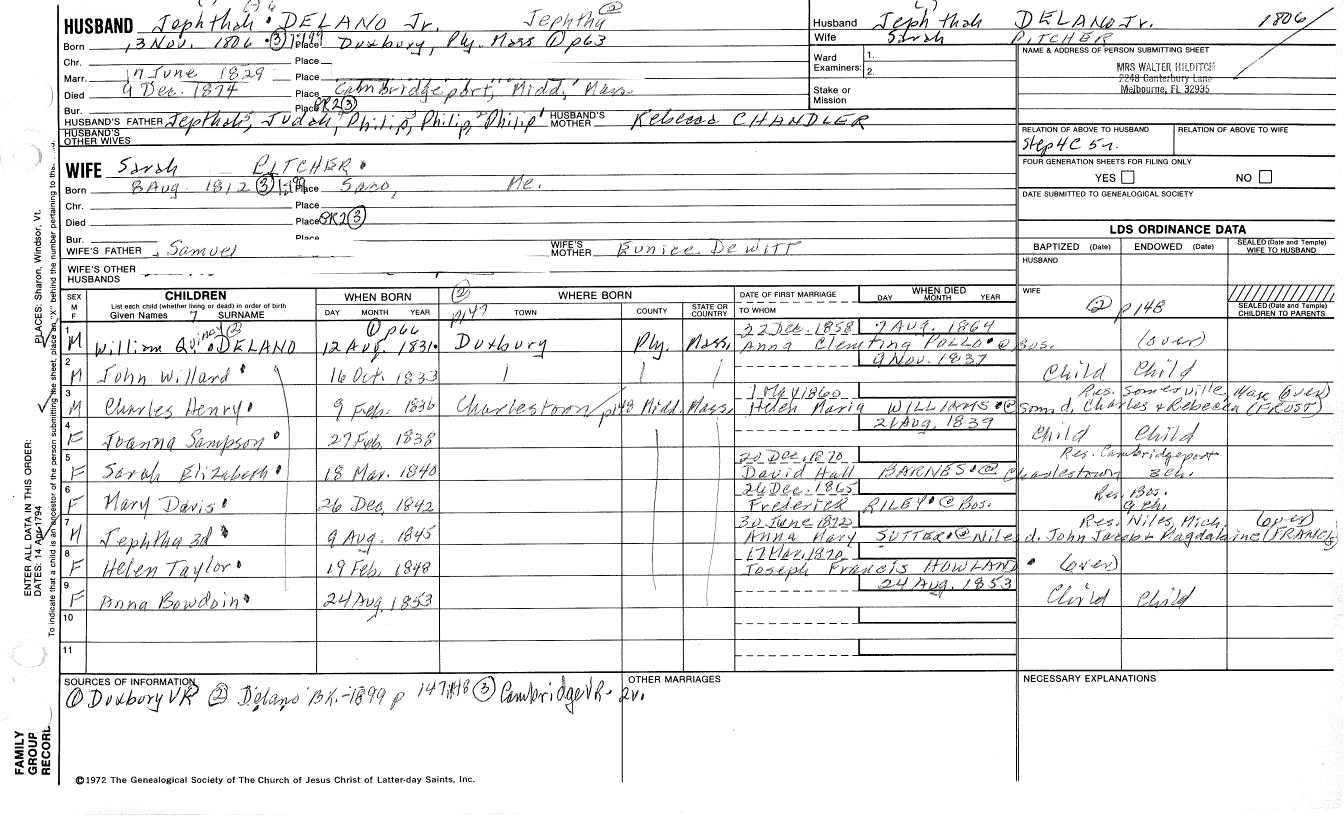 HUSBAND Jephthah DELANO Jr. Jephtha ②
Born 3 Nov. 1806 ③ Place Duxbury, Ply. Mass ① p63
Chr. Place
Marr. 17 June 1829 Place
Died 9 Dec. 1874 Place Cambridgeport, Midd, Mass
Bur. Place GR2 ③
HUSBAND'S FATHER Jepthah, Judah, Philip, Philip, Philip HUSBAND'S MOTHER Rebecca CHANDLER
HUSBAND'S OTHER WIVES
Husband Jephthah DELANO Jr. 1806
Wife Sarah PITCHER
Ward Examiners: 1. 2.
Stake or Mission
NAME & ADDRESS OF PERSON SUBMITTING SHEET
MRS WALTER HILDITCH
2248 Canterbury Lane
Melbourne, FL 32935
RELATION OF ABOVE TO HUSBAND RELATION OF ABOVE TO WIFE
Step 4C 5r.
FOUR GENERATION SHEETS FOR FILING ONLY
YES NO
DATE SUBMITTED TO GENEALOGICAL SOCIETY
WIFE Sarah PITCHER
Born 8 Aug. 1812 ③ Place Saco, Me.
Chr. Place
Died Place GR2 ③
Bur. Place
WIFE'S FATHER Samuel WIFE'S MOTHER Eunice DEWITT
WIFE'S OTHER HUSBANDS
LDS ORDINANCE DATA
BAPTIZED (Date) ENDOWED (Date) SEALED (Date and Temple) WIFE TO HUSBAND
HUSBAND
WIFE
② p148
SEALED (Date and Temple) CHILDREN TO PARENTS
SEX M F CHILDREN List each child (whether living or dead) in order of birth Given Names SURNAME WHEN BORN DAY MONTH YEAR WHERE BORN TOWN COUNTY STATE OR COUNTRY DATE OF FIRST MARRIAGE TO WHOM WHEN DIED DAY MONTH YEAR
② p147
① p66
1 M William Quincy ② DELANO 12 Aug. 1831 Duxbury Ply. Mass. 22 Dec. 1858 7 Aug. 1864
Anna Clementina POLLO @ Bos. (over)
2 M John Willard 16 Oct. 1833 9 Nov. 1837 Child Child
3 M Charles Henry 9 Feb. 1836 Charlestown p148 Midd. Mass. 1 May 1860 Res. Somerville, Mass (over)
Helen Maria WILLIAMS @ Som. d. Charles & Rebecca (FROST)
4 F Joanna Sampson 27 Feb. 1838 21 Aug. 1839 Child Child
5 F Sarah Elizabeth 18 Mar. 1840 20 Dec. 1870 Res. Cambridgeport
David Hall BARNES @ Charlestown 3 ch.
6 F Mary Davis 26 Dec. 1842 26 Dec. 1865 Res. Bos.
Frederick RILEY @ Bos. 9 ch.
7 M Jephtha 3d 9 Aug. 1845 30 June 1872 Res. Niles, Mich. (over)
Anna Mary SUTTER @ Niles d. John Jacob & Magdalaine (FRANCIS)
8 F Helen Taylor 19 Feb. 1848 17 Mar. 1870
Joseph Francis HOWLAND (over)
9 F Anna Bowdoin 24 Aug. 1853 24 Aug. 1853 Child Child
10
11
SOURCES OF INFORMATION
① Duxbury VR ② Delano BK.-1899 p 147,148 ③ Cambridge VR - 2v.
OTHER MARRIAGES
NECESSARY EXPLANATIONS
©1972 The Genealogical Society of The Church of Jesus Christ of Latter-day Saints, Inc.
FAMILY GROUP RECORD
ENTER ALL DATA IN THIS ORDER:
DATES: 14 Apr 1794
PLACES: Sharon, Windsor, Vt.
To indicate that a child is an ancestor of the person submitting the sheet, place an "X" behind the number pertaining to that